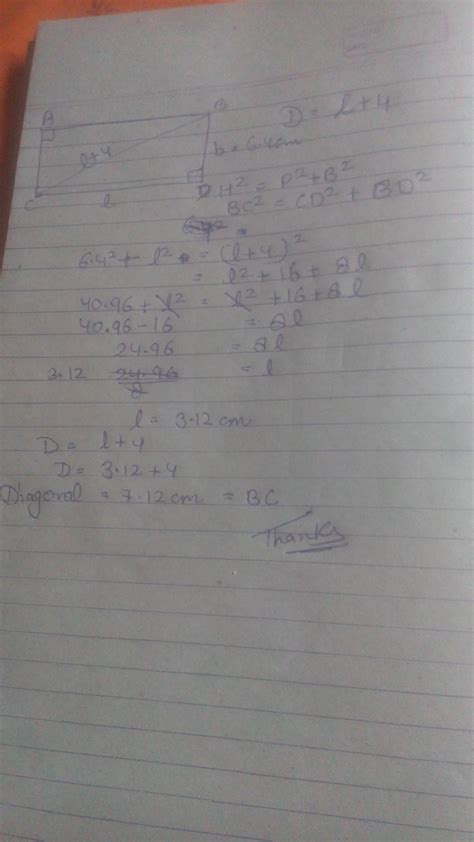 A B
D = l+4
l+4
b = 6.4cm
C l D
H² = P²+B²
BC² = CD² + BD²
6.4² + l² = (l+4)²
= l² + 16 + 8l
40.96 + l² = l² + 16 + 8l
40.96 - 16 = 8l
24.96 = 8l
3.12 24.96/8 = l
l = 3.12 cm
D = l+4
D = 3.12 + 4
Diagonal = 7.12 cm = BC
Thanks